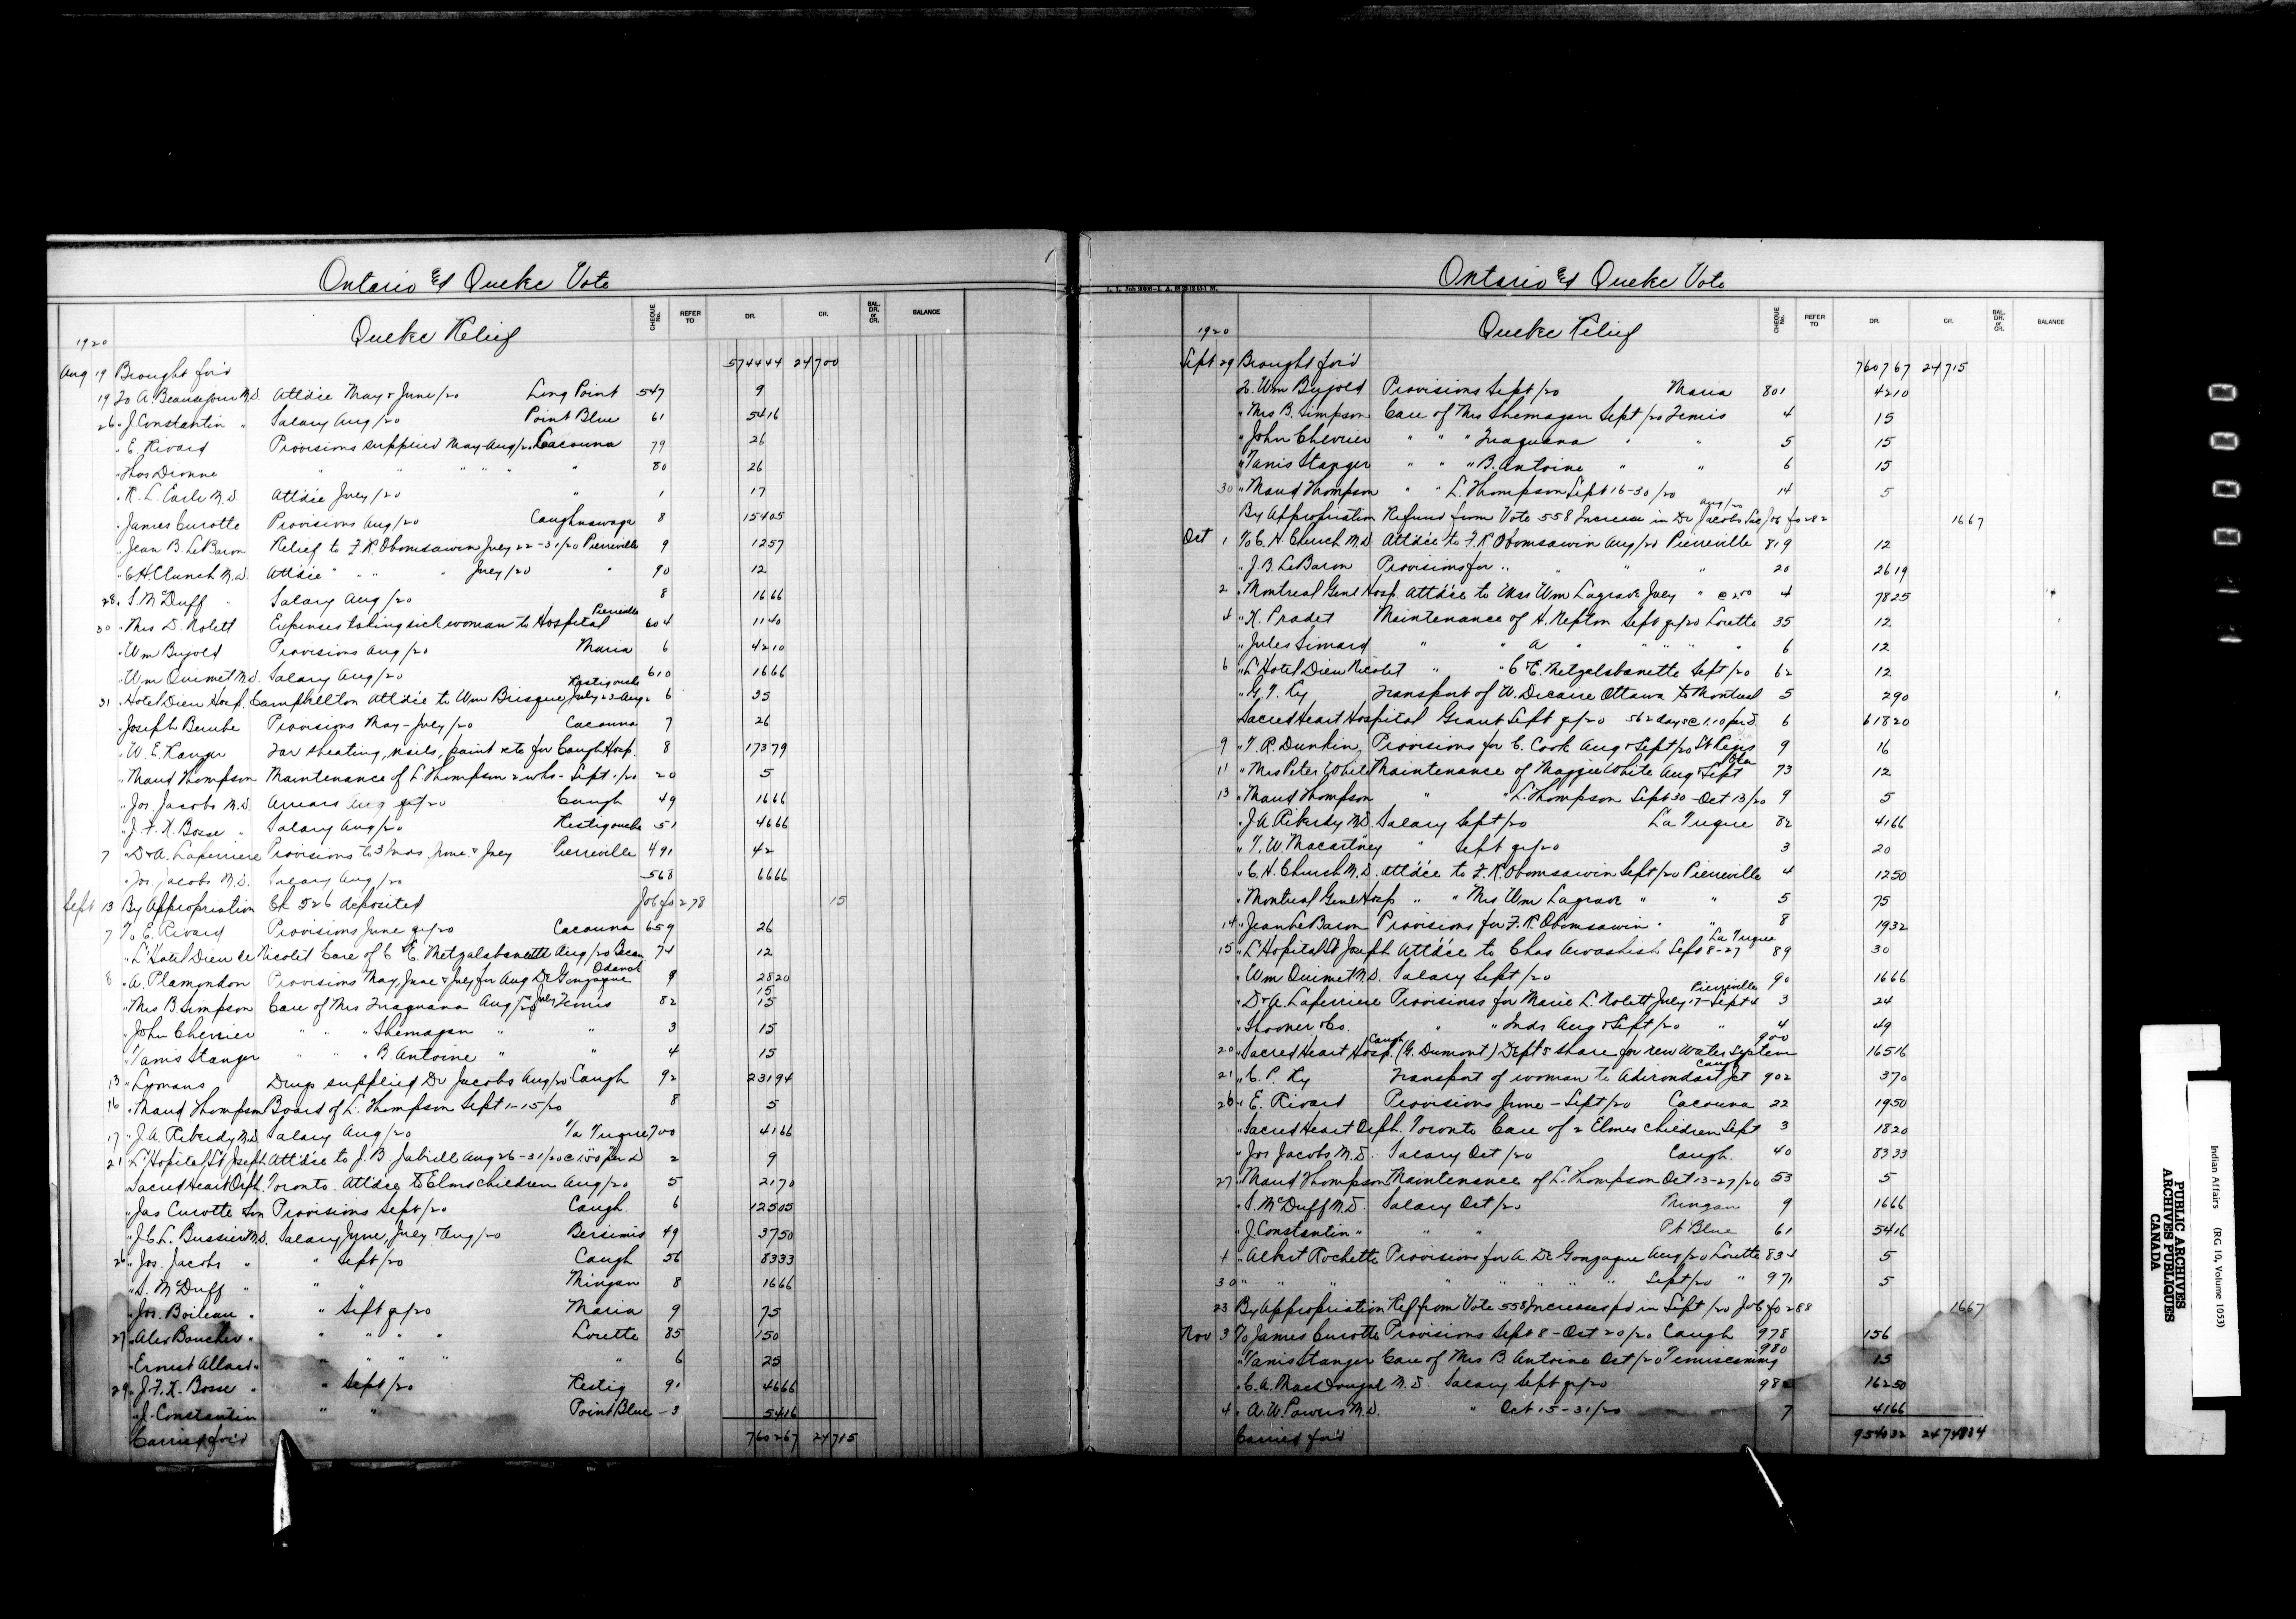 Ontario & Quebec Vote
Quebec Relief
CHEQUE No. REFER TO DR. CR. BAL. DR. or CR. BALANCE
1920
Aug 19 Brought for'd 574444 24700
19 To A. Beausejour M.D. Att'd'ce May & June/20 Long Point 547 9
26 " J. Constantin " Salary Aug/20 Point Blue 61 5416
" E. Rivard Provisions supplied May-Aug/20 Cacouna 79 26
" Thos Dionne " " " " " 80 26
" R. L. Earle M.D. Att'd'ce July/20 " 1 17
" James Curotte Provisions Aug/20 Caughnawaga 8 15405
" Jean B. LeBaron Relief to F. R. Obomsawin July 22-31/20 Pierreville 9 1257
" C H Church M.D. Att'd'ce " " " July/20 " 90 12
28 " S. McDuff " Salary Aug/20 8 1666
30 " Mrs D. Nolett Expenses taking sick woman to Hospital Pierreville 604 1140
" Wm Bujold Provisions Aug/20 Maria 6 4210
" Wm Ouimet M.D. Salary Aug/20 610 1666
31 " Hotel Dieu Hosp. Campbellton Att'd'ce to Wm Brisque, July 23-Aug 2 Restigouche 6 35
" Joseph Berube Provisions May-July/20 Cacouna 7 26
" W. E. Ranger Tar sheating, nails, paint etc for Caugh Hosp. 8 17379
" Maud Thompson Maintenance of L. Thompson 2 wks - Sept 1/20 20 5
" Jos. Jacobs M.D. Arrears Aug qr/20 Caugh 49 1666
" J. F. X. Bosse " Salary Aug/20 Restigouche 51 4666
7 " Dr A. Laferriere Provisions to 3 Inds. June & July Pierreville 491 42
" Jos. Jacobs M.D. Salary Aug/20 568 6666
Sept 13 By Appropriation Ck 526 deposited Job fo 278 15
7 To E. Rivard Provisions June qr/20 Cacouna 659 26
" L'Hotel Dieu de Nicolet Care of C & E. Metzalabanette Aug/20 Becan 74 12
8 " A. Plamondon Provisions May, June & July for Aug De Gonzague Odanak 9 2820
15
" Mrs B Simpson Care of Mrs Inaguana Aug/20 July Temis 82 15
" John Chevrier " " " Shemagan " " 3 15
" Tanis Stanger " " " B. Antoine " " 4 15
13 " Lymans Drugs supplied Dr Jacobs Aug/20 Caugh 92 23194
16 " Maud Thompson Board of L. Thompson Sept 1-15/20 8 5
17 " J. A. Riberdy M.D. Salary Aug/20 La Tuque 700 4166
21 " L'Hopital St Joseph Att'd'ce to J. B. Jabiell Aug 26-31/20 @ 1.50 per D 2 9
" Sacred Heart Orph. Toronto. Att'd'ce to Elms children Aug/20 5 2170
" Jas Curotte Son Provisions Sept/20 Caugh. 6 12505
" J. C. L. Bussier M.D. Salary June, July & Aug/20 Bersimis 49 3750
26 " Jos. Jacobs " " Sept/20 Caugh 56 8333
" S. McDuff " " " Mingan 8 1666
" Jos. Boileau " " Sept qr/20 Maria 9 75
27 " Alex Boucher " " " " " Lorette 85 150
" Ernest Allard " " " " " " 6 25
29 " J. F. X. Bosse " " Sept/20 Restig 91 4666
" J. Constantin " " Point Blue -3 5416
Carried for'd 760267 24715
Ontario & Quebec Vote
Quebec Relief
CHEQUE No. REFER TO DR. CR. BAL. DR. or CR. BALANCE
1920
Sept 29 Brought for'd 760767 24715
To Wm Bujold Provisions Sept/20 Maria 801 4210
" Mrs B. Simpson Care of Mrs Shemagan Sept/20 Temis 4 15
" John Chevrier " " " Inaguana " " 5 15
" Tanis Stanger " " " B. Antoine " " 6 15
30 " Maud Thompson " " L. Thompson Sept 16-30/20 14 5
By Appropriation Refund from Vote 558 Increase in Dr Jacobs Sal Aug/20 Job fo 282 1667
Oct 1 To C. H Church M.D. Att'd'ce to F. R Obomsawin Aug/20 Pierreville 819 12
" J. B. LeBaron Provisions for " " " " 20 2619
2 " Montreal Genl Hosp. Att'd'ce to Mrs Wm Lagrave July " @ 2.50 4 7825
4 " X. Pradet Maintenance of H. Nepton Sept qr/20 Lorette 35 12
" Jules Simard " " A " " " " " 6 12
6 " L'Hotel Dieu Nicolet " " C & E. Metzalabanette Sept/20 62 12
" G. T. Ry Transport of W. Decaire Ottawa to Montreal 5 290
" Sacred Heart Hospital Grant Sept qr/20 562 days @ 1.10 per D. 6 61820
9 " T. R. Dunkin Provisions for C. Cook Aug & Sept/20 St Regis 9 16
11 " Mrs Peter White Maintenance of Maggie White Aug & Sept 73 12
13 " Maud Thompson " " L. Thompson Sept 30-Oct 13/20 9 5
" J. A. Riberdy M.D. Salary Sept/20 La Tuque 82 4166
" T. W. Macartney " Sept qr/20 3 20
" C. H. Church M.D. Att'd'ce to F. R. Obomsawin Sept/20 Pierreville 4 1250
" Montreal Genl Hosp " " Mrs Wm Lagrave " " 5 75
14 " Jean LeBaron Provisions for F. R. Obomsawin " " 8 1932
15 " L'Hopital St Joseph Att'd'ce to Chas Awashish Sept 8-27 La Tuque 89 30
" Wm Ouimet M.D. Salary Sept/20 90 1666
" Dr A. Laferriere Provisions for Marie L. Nolett July 17-Sept 4 Pierreville 3 24
" Shooner & Co. " " Inds Aug & Sept/20 " 4 49
20 " Sacred Heart Hosp. Caugh (G. Dumont) Dept's share for new Water System 900 16516
21 " C. P. Ry Transport of woman to Adirondack Jct Caugh 902 370
26 " E. Rivard Provisions June-Sept/20 Cacouna 22 1950
" Sacred Heart Orph. Toronto Care of 2 Elmes children Sept 3 1820
" Jos Jacobs M.D. Salary Oct/20 Caugh. 40 8333
27 " Maud Thompson Maintenance of L. Thompson Oct 13-27/20 53 5
" S. McDuff M.D. Salary Oct/20 Mingan 9 1666
" J. Constantin " " " Pt Blue 61 5416
4 " Albert Rochette Provisions for A. De Gonzague Aug/20 Lorette 834 5
30 " " " " " " " " Sept/20 " 971 5
23 By Appropriation Ref from Vote 558 Increases pd in Sept/20 Job fo 288 1667
Nov 3 To James Curotte Provisions Sept 8-Oct 20/20 Caugh 978 156
" Tanis Stanger Care of Mrs B. Antoine Oct/20 Temiscaming 980 15
" C. A. MacDougal M.D. Salary Sept qr/20 98 16250
4 " A. W. Powers M.D. " Oct 15-31/20 7 4166
Carried for'd 954032 2474834
Indian Affairs (RG 10, Volume 1053)
PUBLIC ARCHIVES
ARCHIVES PUBLIQUES
CANADA